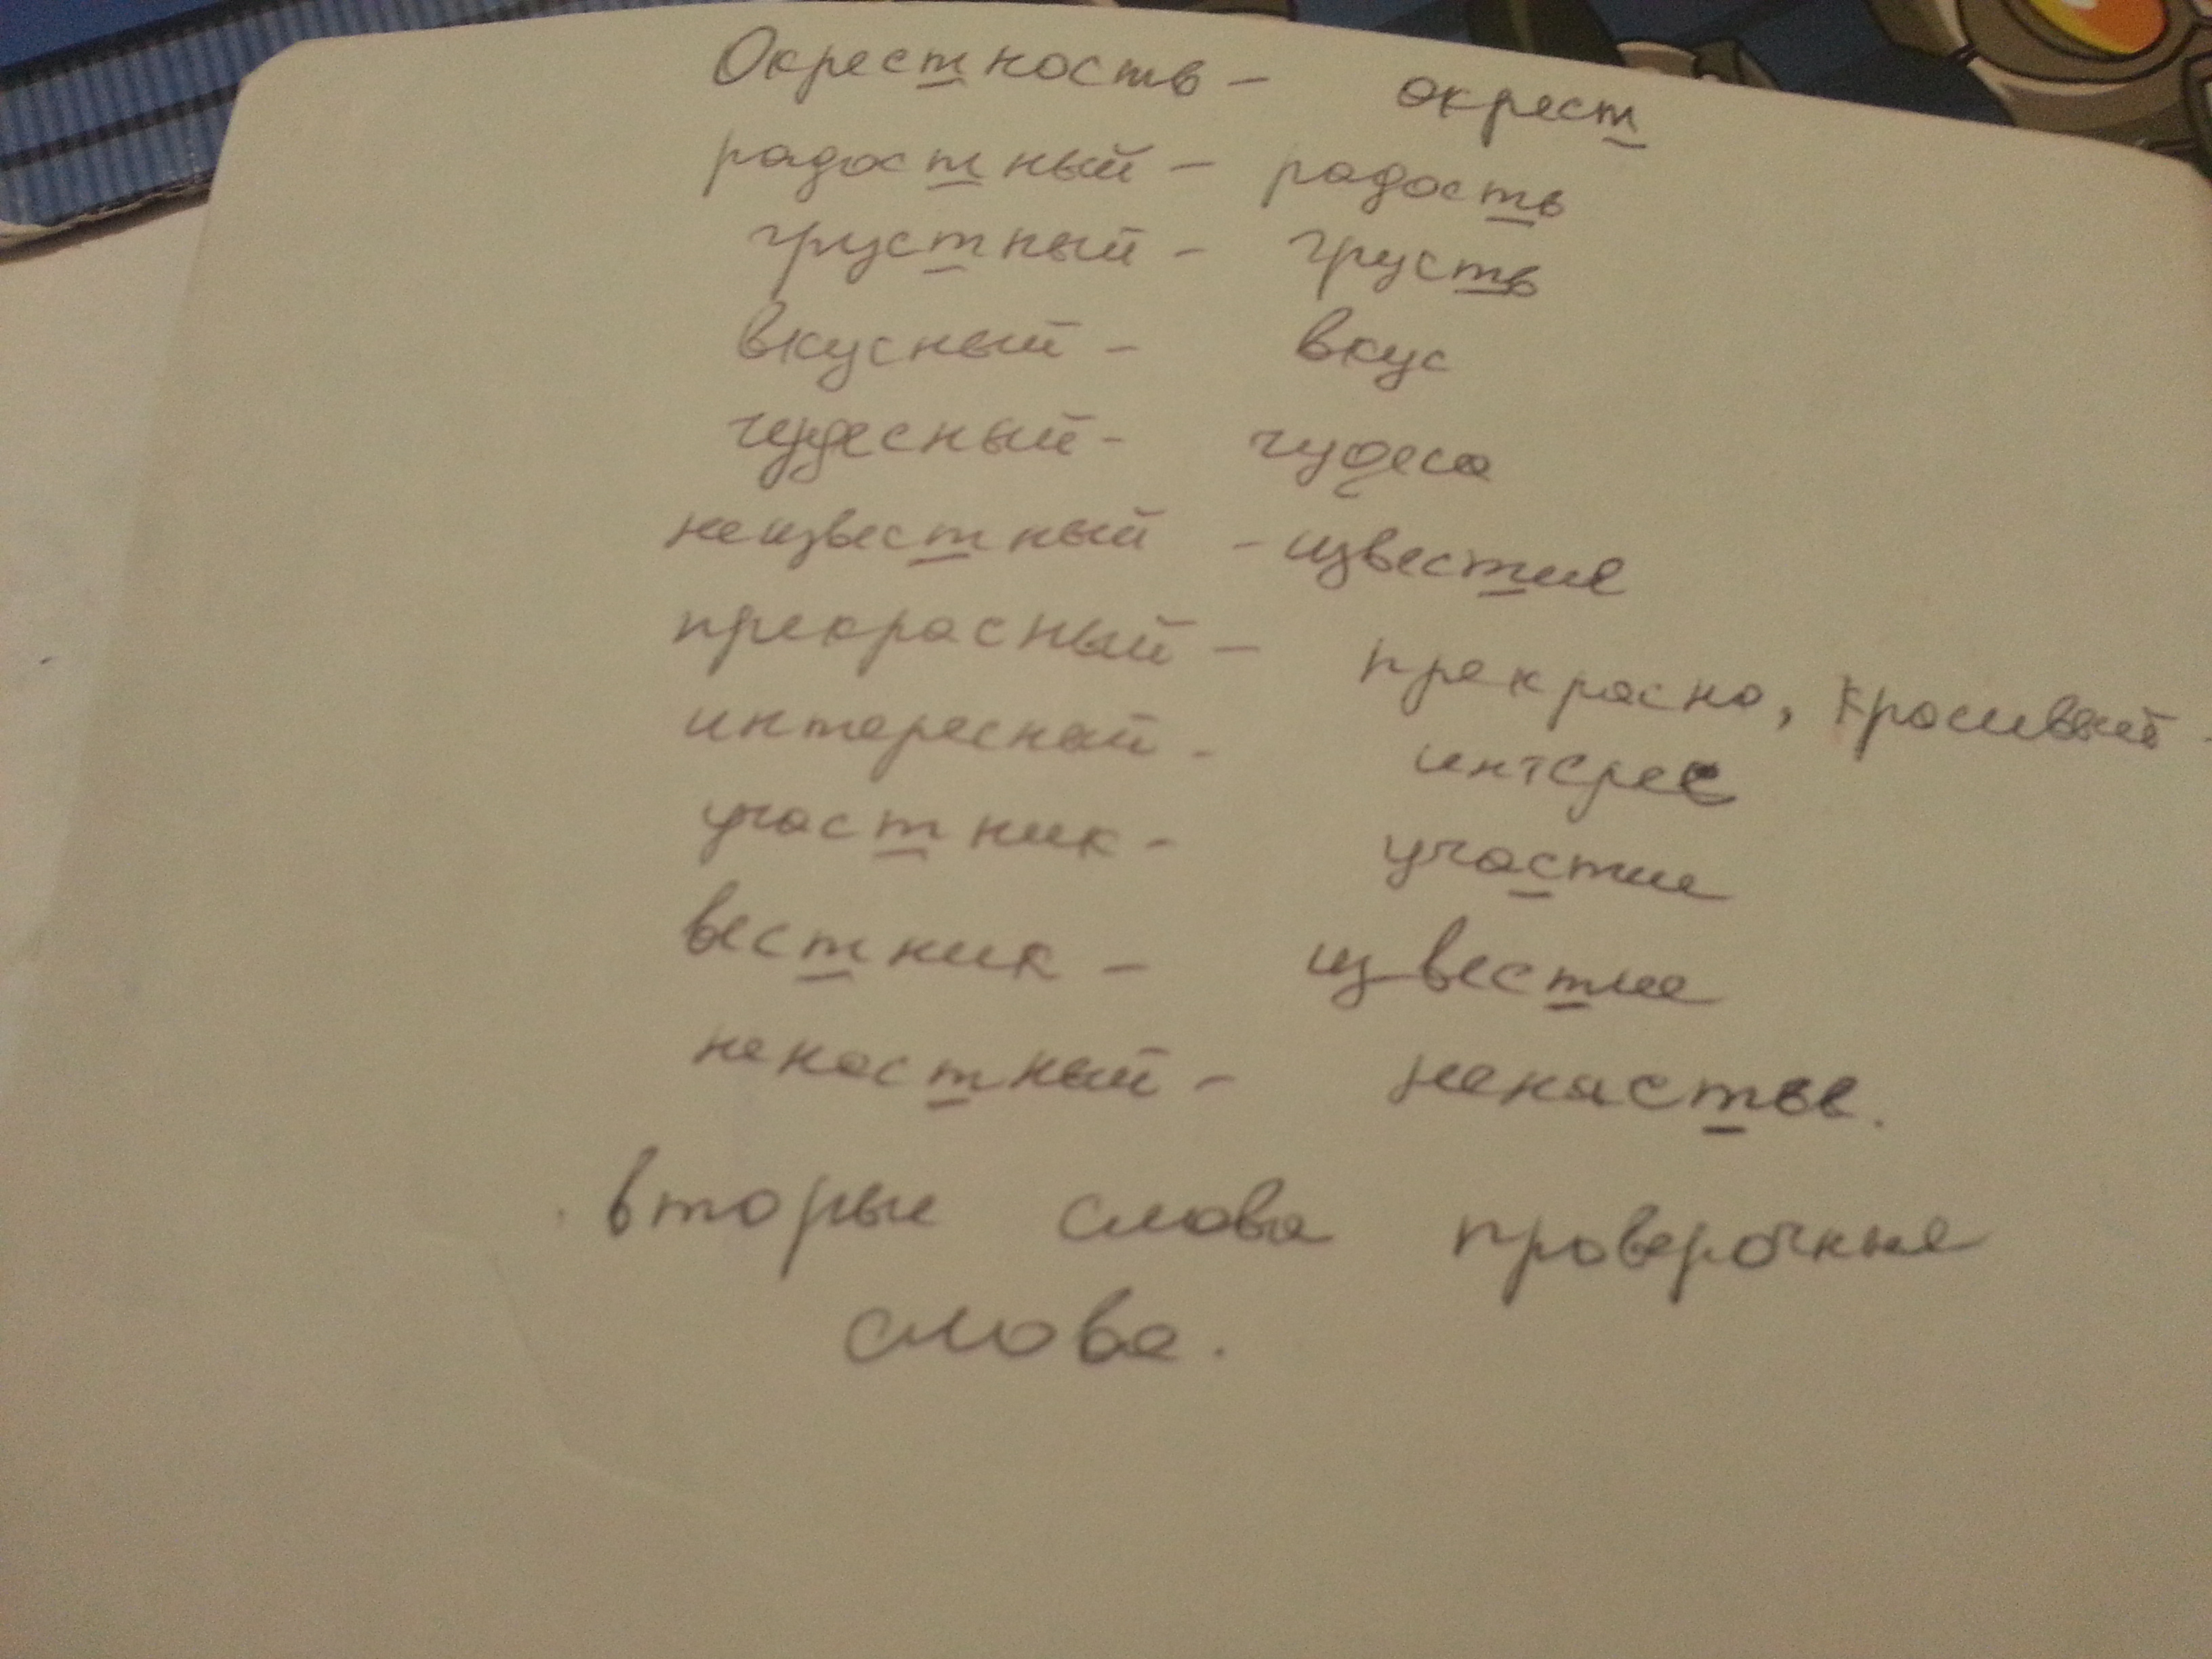 Окрестность - окрест
радостный - радость
грустный - грусть
вкусный - вкус
чудесный - чудеса
неизвестный - известие
прекрасный - прекрасно, красивый
интересный - интерес
участник - участие
вестник - известие
ненастный - ненастье.
вторые слова проверочные
слова.